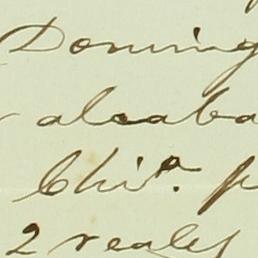 Doming
alcaba
Chiª. p
2 reales